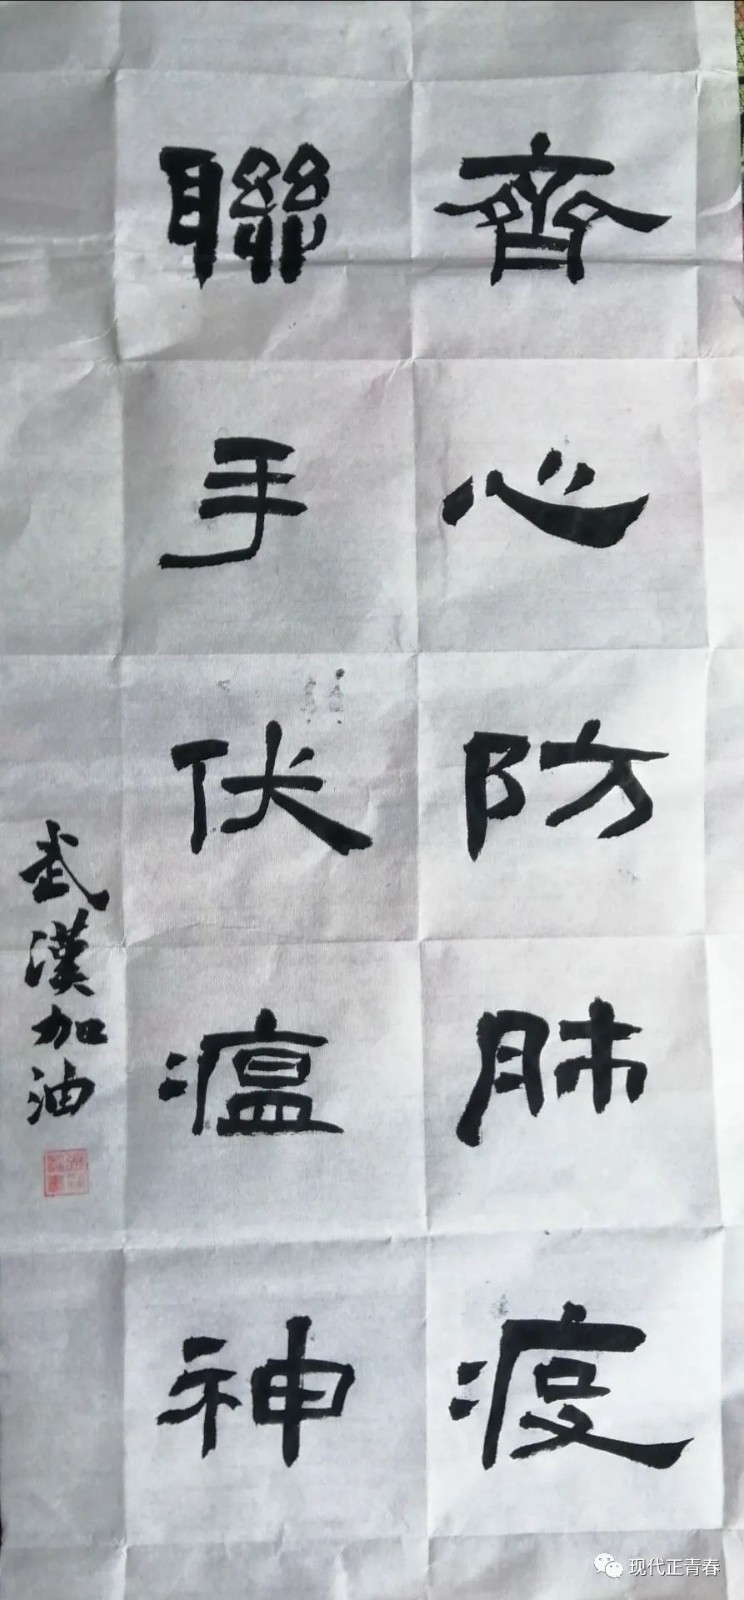 齊心防肺疫
聯手伏瘟神
武漢加油
现代正青春